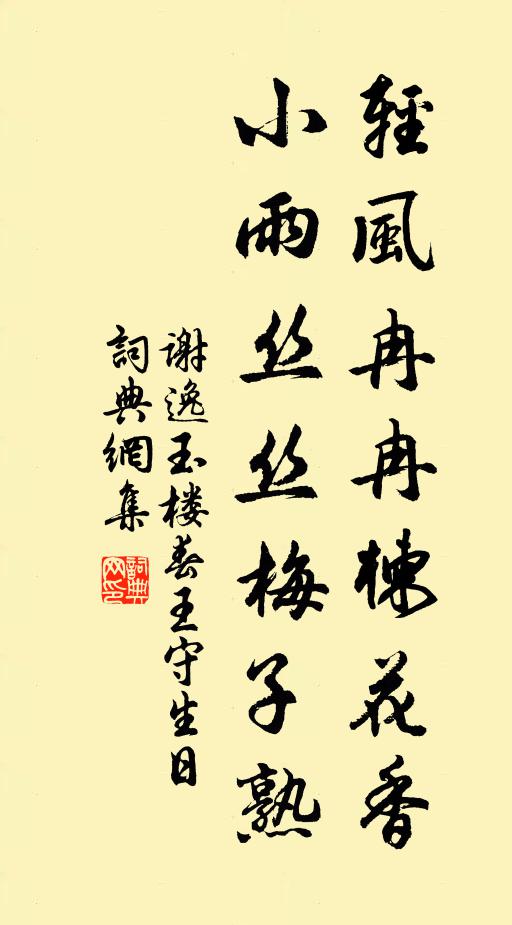 輕風冉冉楝花香
小雨丝丝梅子熟
谢逸玉楼春王守生日
詞典網集
詞典網印